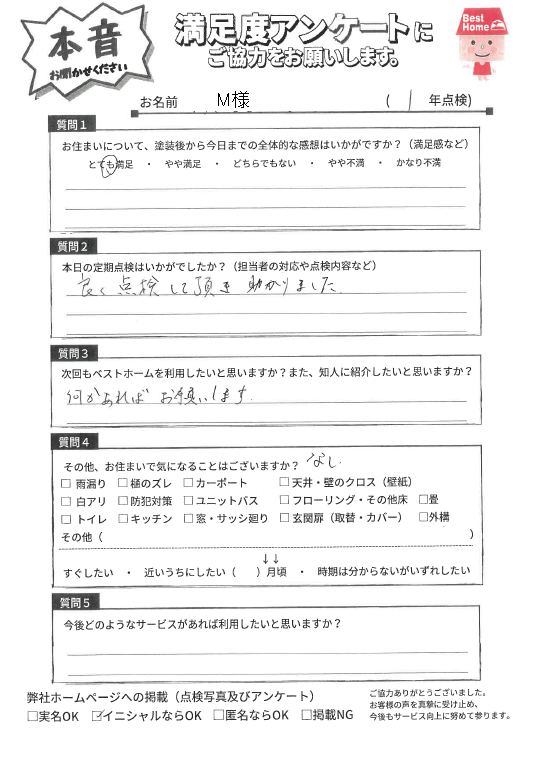 本音
お聞かせください
満足度アンケートに
ご協力をお願いします。
Best Home
お名前 M様 ( 1 年点検)
質問1
お住まいについて、塗装後から今日までの全体的な感想はいかがですか？（満足感など）
とても満足 ・ やや満足 ・ どちらでもない ・ やや不満 ・ かなり不満
質問2
本日の定期点検はいかがでしたか？（担当者の対応や点検内容など）
良く点検して頂き助かりました
質問3
次回もベストホームを利用したいと思いますか？また、知人に紹介したいと思いますか？
何かあればお願いします。
質問4
その他、お住まいで気になることはございますか？ なし
□ 雨漏り □ 樋のズレ □ カーポート □ 天井・壁のクロス（壁紙）
□ 白アリ □ 防犯対策 □ ユニットバス □ フローリング・その他床 □畳
□ トイレ □ キッチン □ 窓・サッシ廻り □ 玄関扉（取替・カバー） □外構
その他（ ）
↓↓
すぐしたい ・ 近いうちにしたい（ ）月頃 ・ 時期は分からないがいずれしたい
質問5
今後どのようなサービスがあれば利用したいと思いますか？
弊社ホームページへの掲載（点検写真及びアンケート）
□実名OK ☑イニシャルならOK □匿名ならOK □掲載NG
ご協力ありがとうございました。
お客様の声を真摯に受け止め、
今後もサービス向上に努めて参ります。